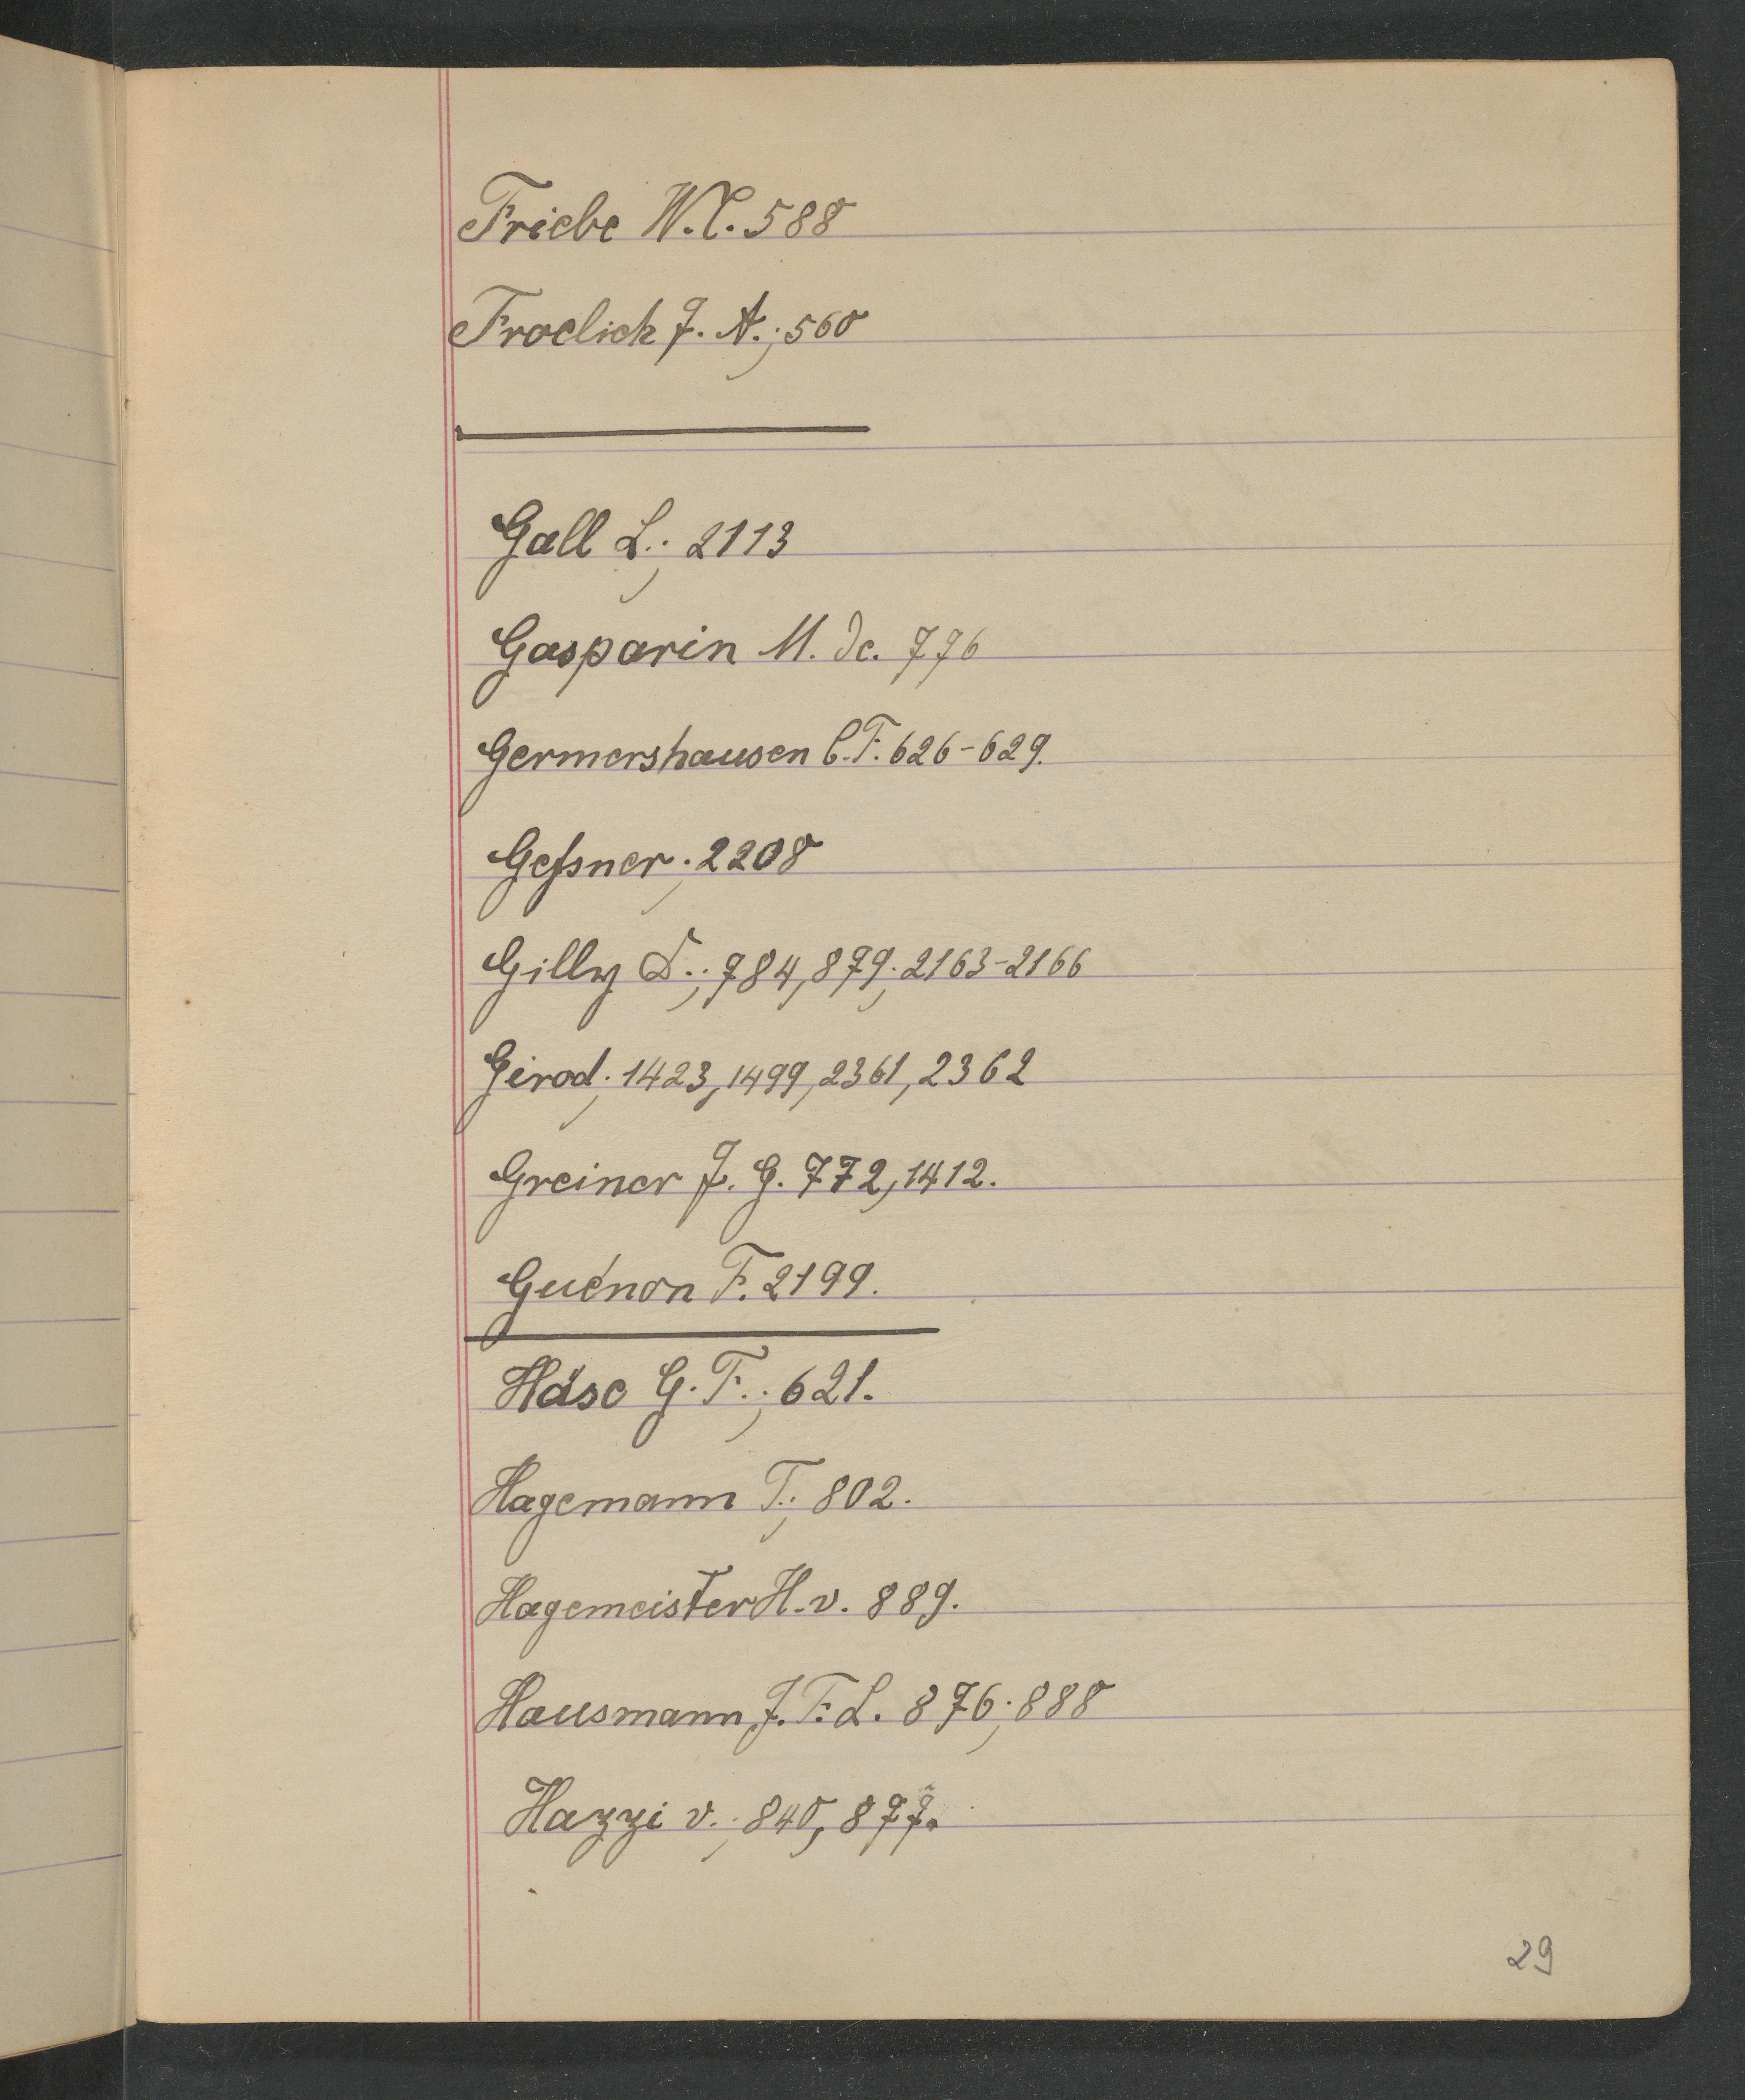 Friebe W. C. 588
Froelich J. A.; 560
Gall L.; 2113
Gasparin M. de. 776
Germershausen C. F. 626-629.
Geſsner; 2208
Gilly D.; 784, 879; 2163-2166
Girod; 1423, 1499, 2361, 2362
Greiner J. G. 772, 1412.
Guénon F. 2199.
Häse G. F.; 621.
Hagemann T.; 802.
Hagemeister H. v. 889.
Hausmann J. F. L. 876; 888
Hazzi v.; 840, 877.
29